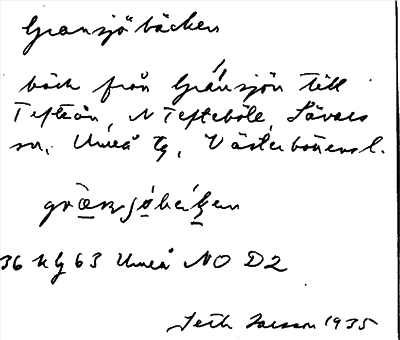 Gransjöbäcken
bäck från Gransjön till
Tefteån, N Tefteböle, Sävars
sn, Umeå tg, Västerbottens l.
36 Kg 63 Umeå NO D2
Seth Larsson 1935